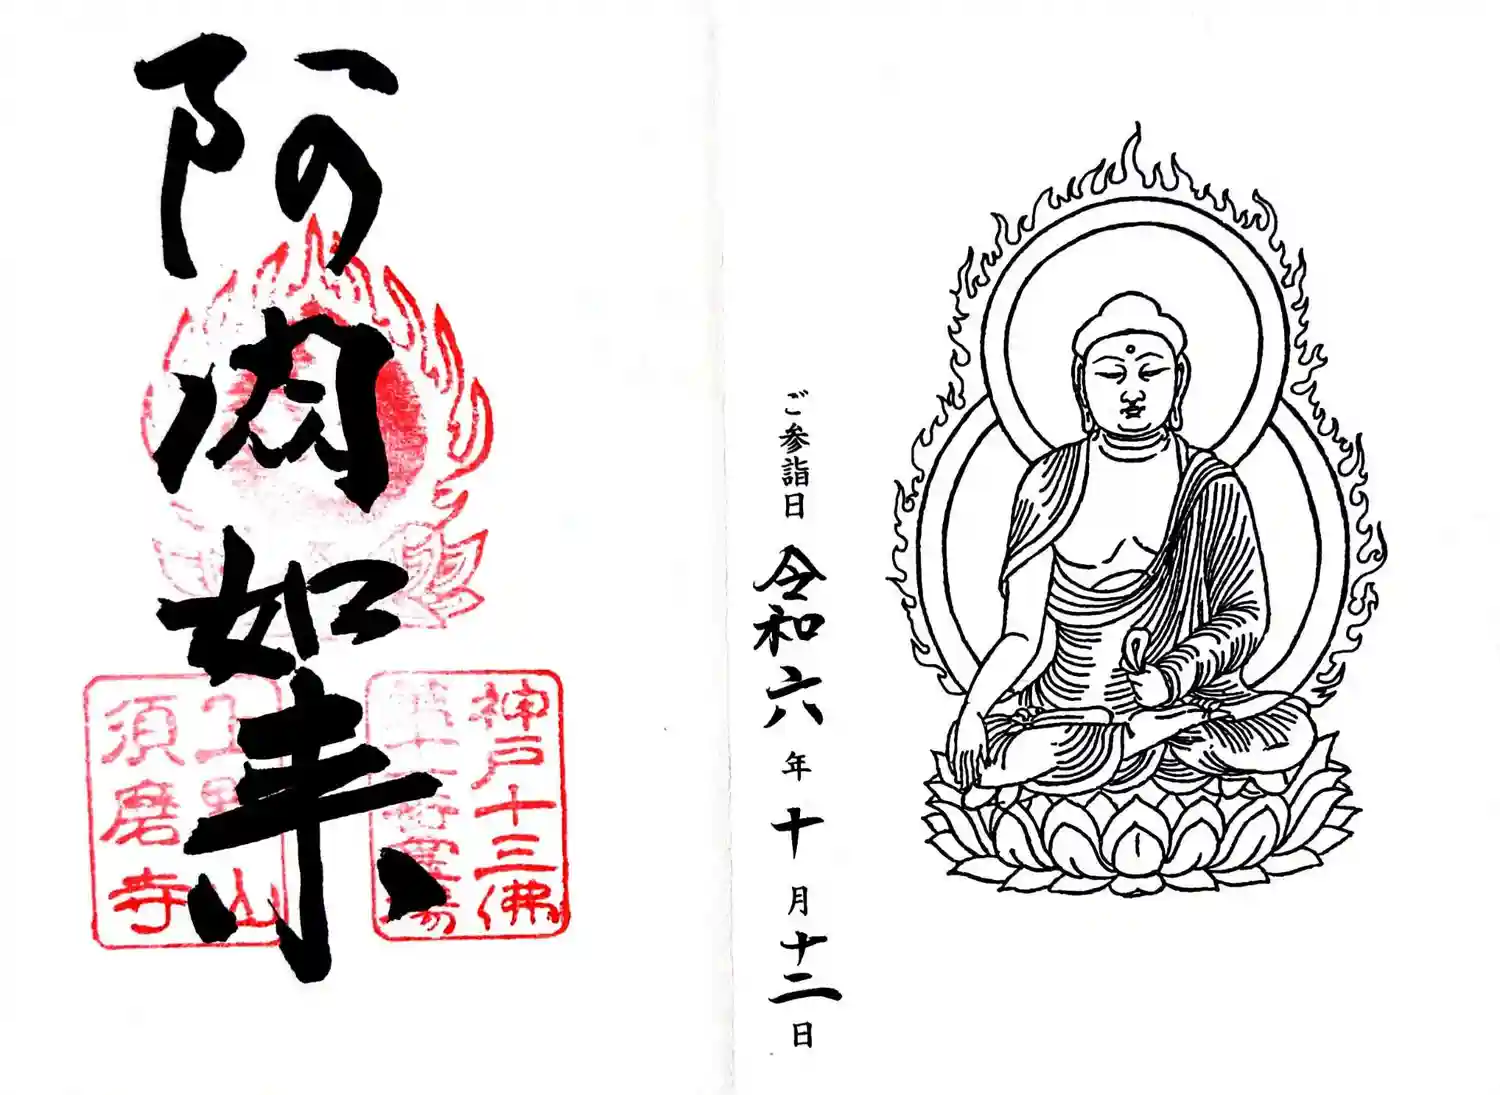 ご参詣日 令和六年十月十二日
阿閦如来
神戸十三佛
第十一番霊場
上野山
須磨寺